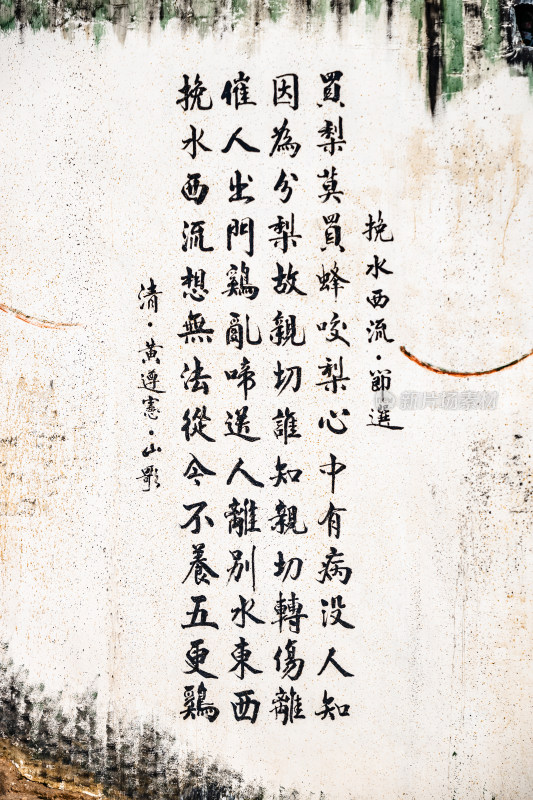 挽水西流·節選
買梨莫買蜂咬梨心中有病没人知
因為分梨故親切誰知親切轉傷離
催人出門鷄亂啼送人離別水東西
挽水西流想無法從今不養五更鷄
清·黄遵憲·山歌
新片场素材